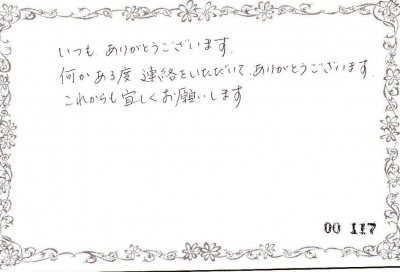 いつも ありがとうございます.
何かある度 連絡をいただいて、ありがとうございます.
これからも宜しくお願いします
00 117